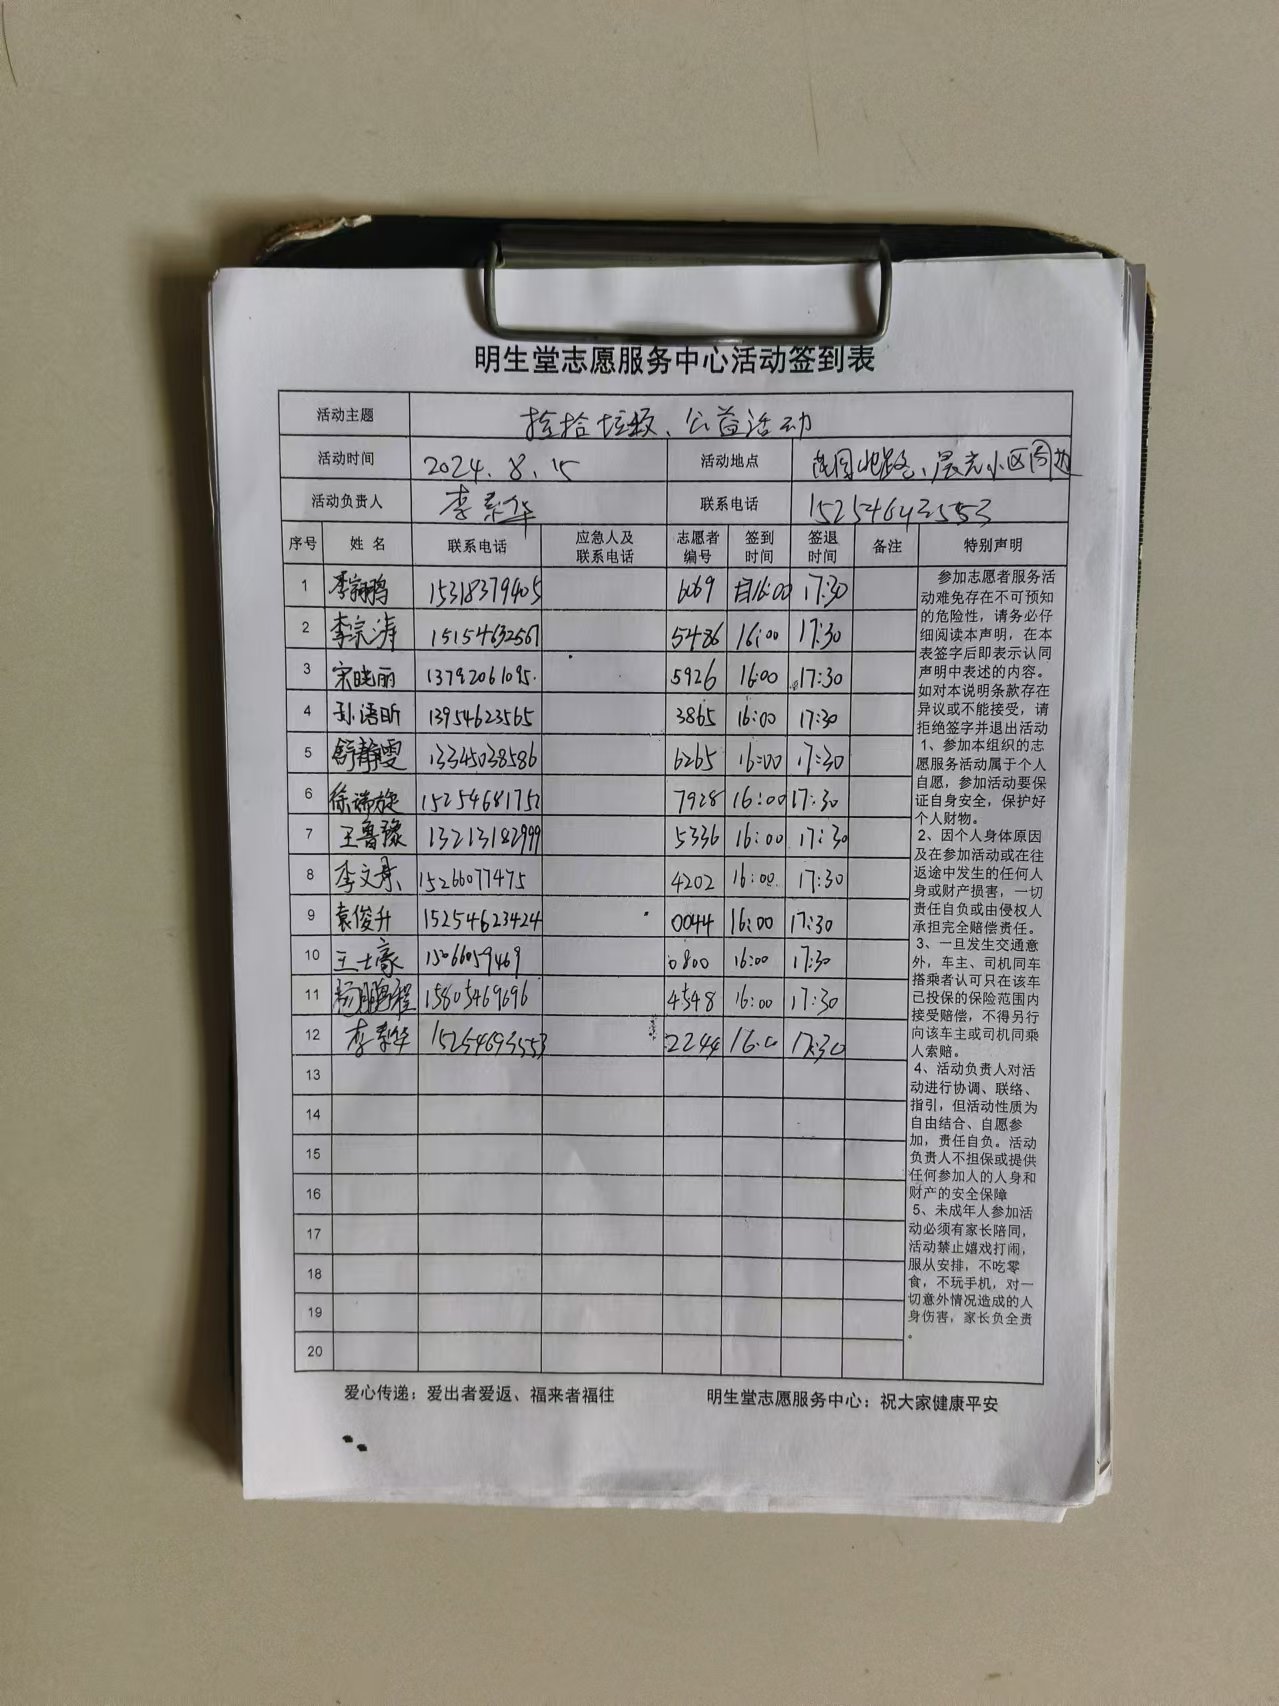 明生堂志愿服务中心活动签到表
活动主题 捡拾垃圾、公益活动
活动时间 2024.8.15 活动地点 晨光小区周边
活动负责人 李 华 联系电话 15254643553
序号 姓名 联系电话 应急人及联系电话 志愿者编号 签到时间 签退时间 备注 特别声明
1 李翮鹏 15318379405 6069 16:00 17:30
2 李宗涛 15154632567 5486 16:00 17:30
3 宋晓丽 13792061095 5926 16:00 17:30
4 孙语昕 13954623565 3865 16:00 17:30
5 舒静雯 13345038586 6265 16:00 17:30
6 徐瑞旋 15254681752 7928 16:00 17:30
7 王鲁豫 13213182999 5336 16:00 17:30
8 李文景 15266077475 4202 16:00 17:30
9 袁俊升 15254623424 0044 16:00 17:30
10 王士豪 15066059469 0800 16:00 17:30
11 杨鹏程 15805469696 4548 16:00 17:30
12 李 华 15254693553 2244 16:00 17:30
13
14
15
16
17
18
19
20
参加志愿者服务活
动难免存在不可预知
的危险性，请务必仔
细阅读本声明，在本
表签字后即表示认同
声明中表述的内容。
如对本说明条款存在
异议或不能接受，请
拒绝签字并退出活动
1、参加本组织的志
愿服务活动属于个人
自愿，参加活动要保
证自身安全，保护好
个人财物。
2、因个人身体原因
及在参加活动或在往
返途中发生的任何人
身或财产损害，一切
责任自负或由侵权人
承担完全赔偿责任。
3、一旦发生交通意
外，车主、司机同车
搭乘者认可只在该车
已投保的保险范围内
接受赔偿，不得另行
向该车主或司机同乘
人索赔。
4、活动负责人对活
动进行协调、联络、
指引，但活动性质为
自由结合、自愿参
加，责任自负。活动
负责人不担保或提供
任何参加人的人身和
财产的安全保障
5、未成年人参加活
动必须有家长陪同，
活动禁止嬉戏打闹，
服从安排，不吃零
食，不玩手机，对一
切意外情况造成的人
身伤害，家长负全责
。
爱心传递：爱出者爱返、福来者福往 明生堂志愿服务中心：祝大家健康平安